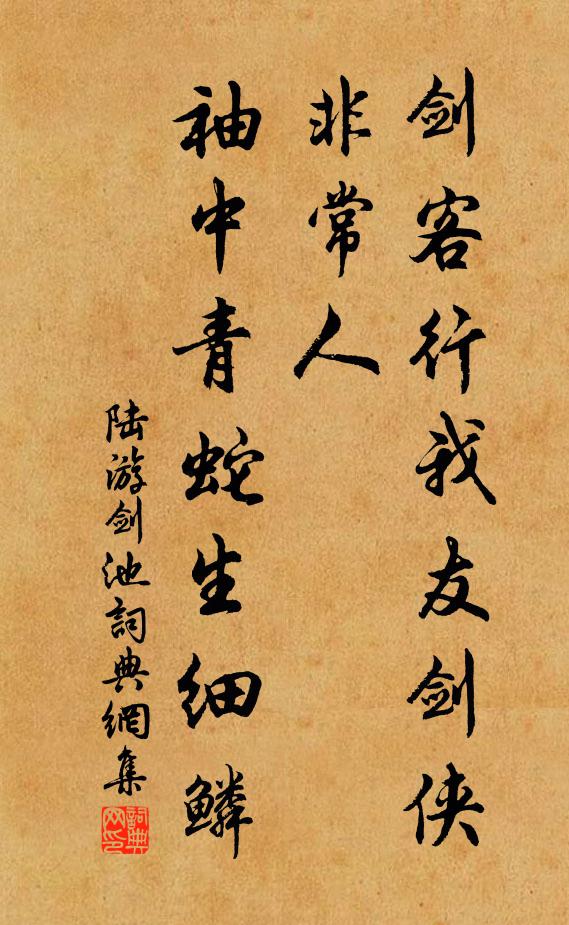 剑客行我友剑侠
非常人
袖中青蛇生细鳞
陆游剑池詞典網集
詞典
网印